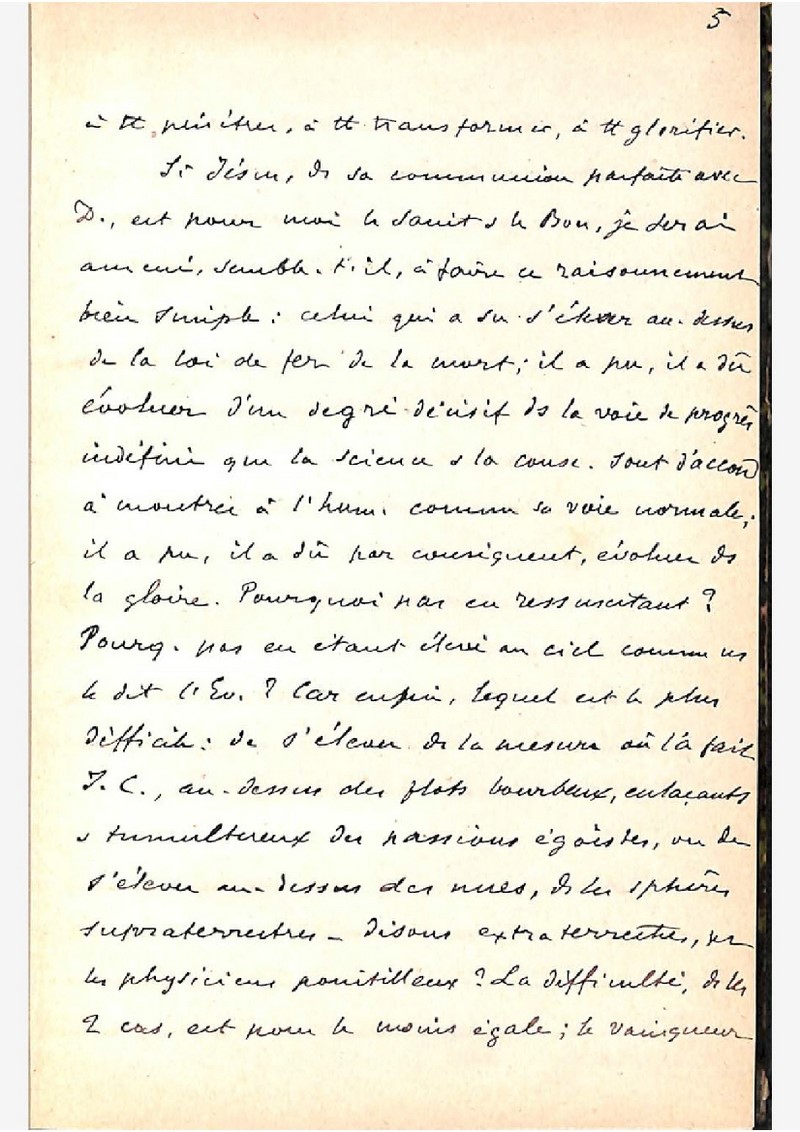 5
à tt pénétrer, à tt transformer, à tt glorifier.
Si Jésus, ds sa communion parfaite avec
D., est pour moi le Saint & le Bon, je serai
amené, semble-t-il, à faire ce raisonnement
bien simple : celui qui a su s'élever au-dessus
de la loi de fer de la mort ; il a pu, il a dû
évoluer d'un degré décisif ds la voie de progrès
indéfini que la science & la consc. sont d'accord
à montrer à l'hum. comme sa voie normale ;
il a pu, il a dû par conséquent, évoluer ds
la gloire. Pourquoi pas en ressuscitant ?
Pourq. pas en étant élevé au ciel comme ns
le dit l'Ev. ? Car enfin, lequel est le plus
difficile : de s'élever ds la mesure où l'a fait
J. C., au-dessus des flots bourbeux, enlaçants
& tumultueux des passions égoïstes, ou de
s'élever au-dessus des nues, ds les sphères
supraterrestres – disons extraterrestres,
les physiciens pointilleux ? La difficulté, ds les
2 cas, est pour le moins égale ; le vainqueur